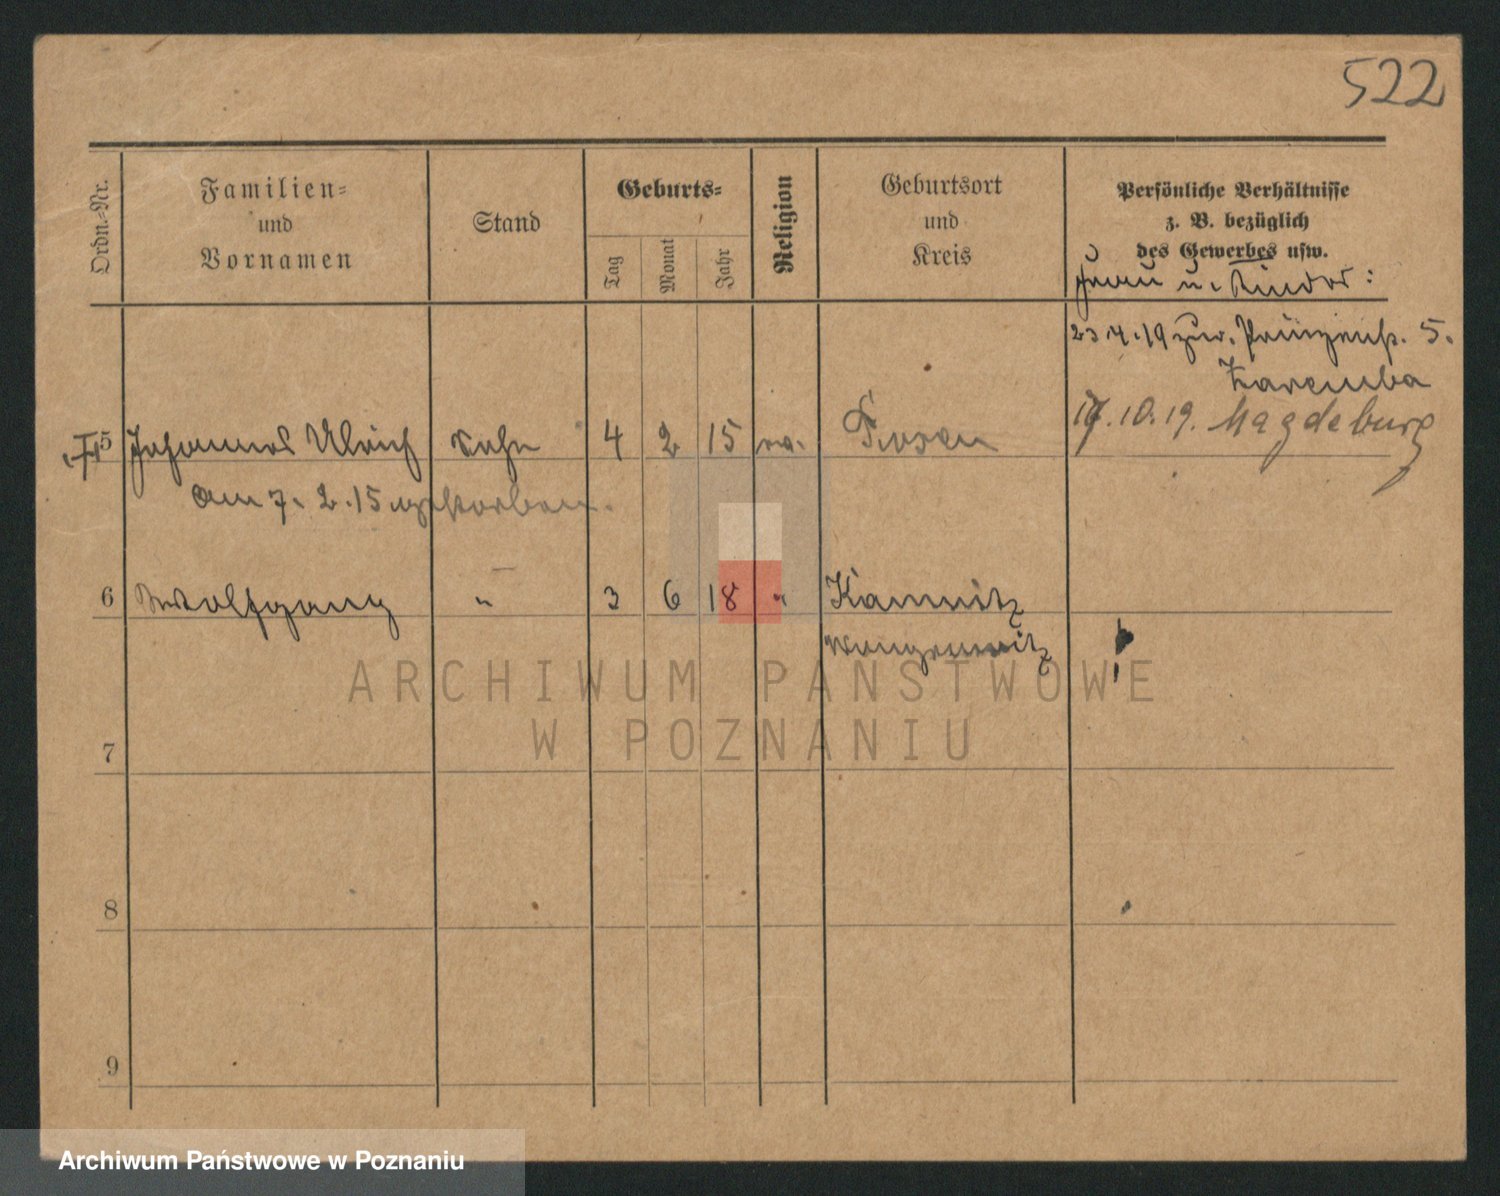 522
Ordn.-Nr.
Familien-
und
Vornamen
Stand
Geburts-
Tag
Monat
Jahr
Religion
Geburtsort
und
Kreis
Persönliche Verhältnisse
z. B. bezüglich
des Gewerbes usw.
Frau u. Kinder:
23.4.19 zur. Prinzenstr. 5.
Zaremba
17.10.19. Magdeburg
5 Johannes Ulrich Sohn 4 2 15 ev. Posen
am 7. 2. 15 gestorben.
6 Wolfgang " 3 6 18 " Kamnitz
7
8
9
ARCHIWUM PAŃSTWOWE
W POZNANIU
Archiwum Państwowe w Poznaniu